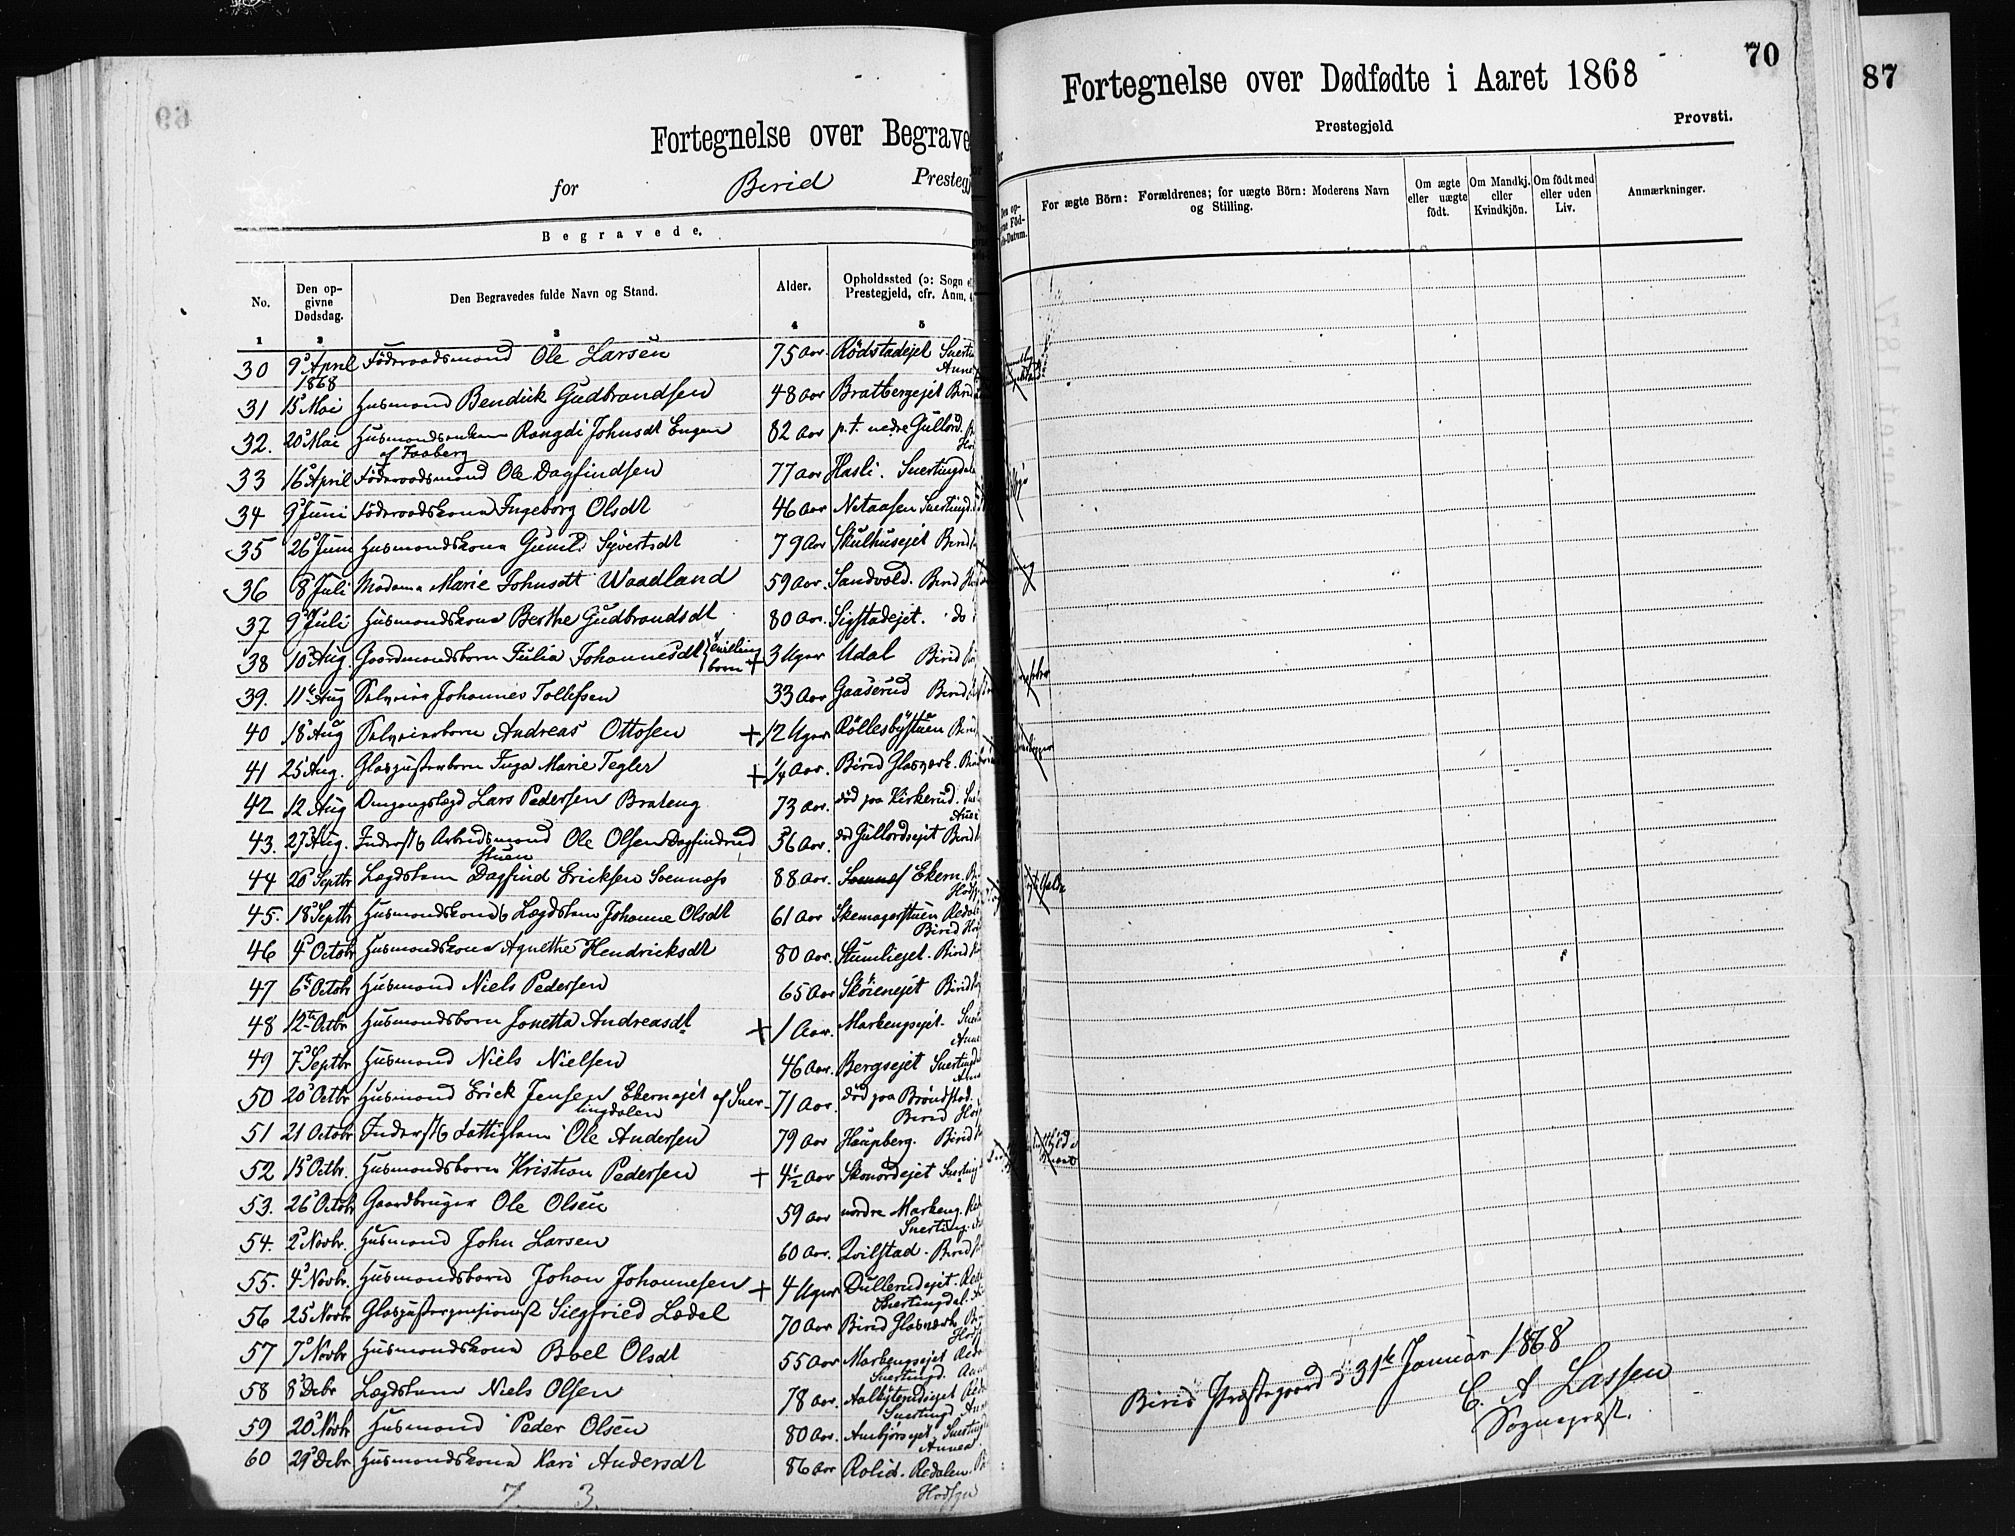 69
Fortegnelse over Begrave
for Birid Prestegj
Begravede.
No. Den opgivne Dødsdag. Den Begravedes fulde Navn og Stand. Alder. Opholdssted (ɔ: Sogn el Prestegjeld, cfr. Anm.
1 2 3 4 5
30 9 April 1868 Föderaadsmand Ole Larsen 75 Aar Rödstadejet
31 15 Mai Husmand Bendick Gudbrandsen 48 Aar Bratbergejet Birid
32. 20 Mai Husmandsenken Rangdi Johnsdt Engen 82 Aar p.t. nedre Gullord.
af Faaberg
33 16 April Föderaadsmand Ole Dagfindsen 77 Aar Hasli. Snertingdal
34 9 Juni Föderaadskona Ingeborg Olsdt 46 Aar Netaasen Snertingd.
35 26 Juni Husmandskona Gunild Syvertsdt 79 Aar Skulhusejet Birid
36 8 Juli Madama Marie Johnsdtt Waadland 59 Aar. Sandvold. Birid
37 9 Juli Husmandskona Berthe Gudbrandsdt 80 Aar. Sigstadejet. do
38 10 Aug. Gaardmandsbarn Julia Johannesdt tvillingbarn + 3 Uger Udal Birid
39. 11te Aug Selveier Johannes Tollefsen 33 Aar Gaaserud Birid
40 18 Aug Selveierbarn Andreas Ottosen + 12 Uger Röllesbystuen Birid
41 25 Aug. Glaspusterbarn Inga Marie Tegler + 1/4 Aar. Birid Glasværk.
42 12 Aug Omgangslægd Lars Pedersen Brateng 73 Aar. död paa Kirkerud.
43. 27 Aug. Inderst & Arbeidsmand Ole Olsen Dagfindrud 36 Aar. Gullordsejet Birid
stuen
44 26 Septbr Lægdslem Dagfind Ericksen Sveennæs 88 Aar. Ekern.
45. 18 Septbr Husmandskona & Lægdslem Johanne Olsdt 61 Aar Skomagerstuen Redal
Birid
46 4 Octobr Husmandskona Agnethe Hendricksdt 80 Aar. Stumliejet. Birid
47 6te Octobr Husmand Niels Pedersen 65 Aar Sköienejet Birid
48 12te Octbr Husmandsbarn Jonetta Andreasdt + 1 Aar. Markengsejet.
49 7 Septbr Husmand Niels Nielsen 46 Aar. Bergsejet Snertingd
50 20 Octbr Husmand Erick Jensen Ekernejet af Snertingdalen 71 Aar. död paa Bröndstad.
Birid
51 21 Octobr Inderst & Fattiglem Ole Andersen 79 Aar Haugsberg. Birid
52 15 Octbr. Husmandsbarn Kristian Pedersen + 4 1/2 Aar Skonordejet Snerting
53. 26 Octobr Gaardbruger Ole Olsen 59 Aar nordre Markeng.
Snerting.
54. 2 Novbr. Husmand John Larsen 60 Aar. Qvilstad. Birid
55. 4 Novbr. Husmandsbarn Johan Johannesen + 4 Uger Dullerudejet.
Snertingdal.
56 25 Novbr Glaspusterpensionist Siegfried Lædel 70 Aar Birid Glasværk
57 7 Novbr Husmandskona Boel Olsdt 55 Aar Markengsejet
Snertingd.
58 8 Decbr Lægdslem Niels Olsen 78 Aar. Aalbystudejet
Snertingd
59 20 Novbr Husmand Peder Olsen 80 Aar. Ambjörsejet
60 29 Decbr Husmandskona Kari Andersdt 86 Aar Rolid. Redalen.
7. 3.
70
87
Fortegnelse over Dødfødte i Aaret 1868
Prestegjeld Provsti.
For ægte Börn: Forældrenes; for uægte Börn: Moderens Navn og Stilling. Om ægte eller uægte födt. Om Mandkj. eller Kvindkjön. Om födt med eller uden Liv. Anmærkninger.
Birids Præstegaard d 31te Januar 1868
C. A Lassen
Sognepræst.